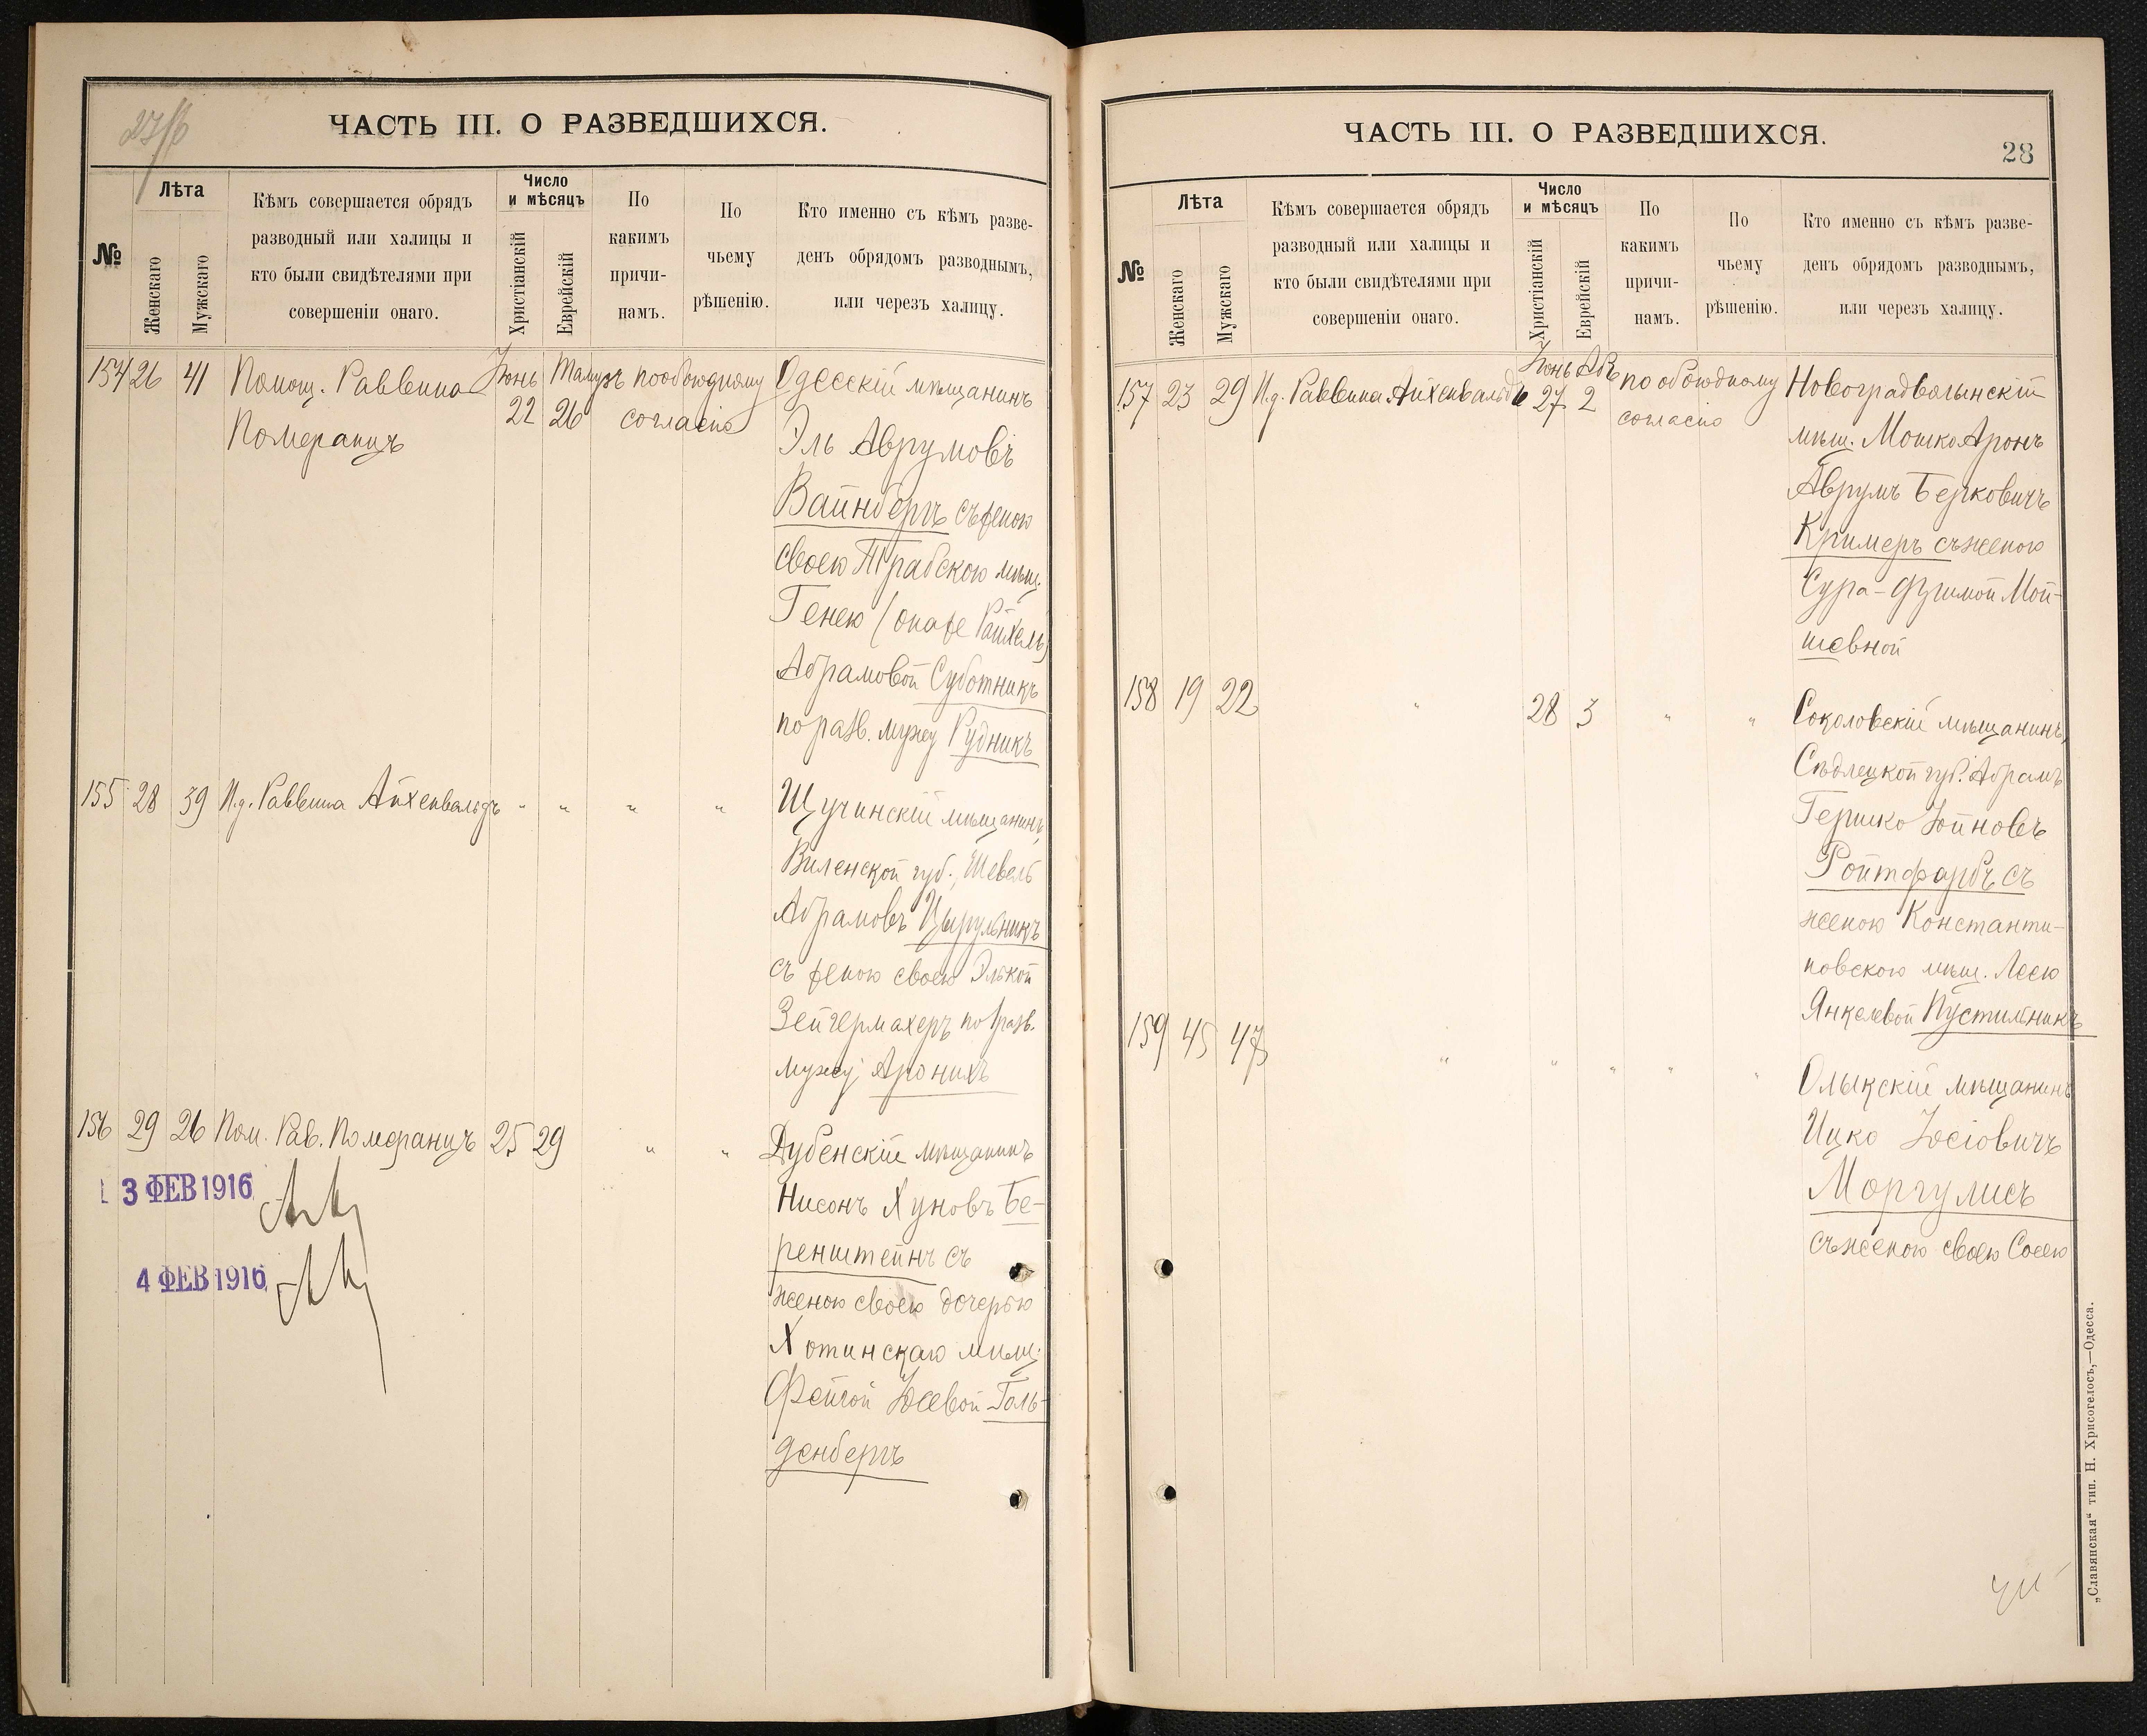 27/б
ЧАСТЬ III. О РАЗВЕДШИХСЯ.
№
Лѣта
Женскаго
Мужскаго
Кѣмъ совершается обрядъ
разводный или халицы и
кто были свидѣтелями при
совершеніи онаго.
Число
и мѣсяцъ
Христіанскій
Еврейскій
По
какимъ
причи-
намъ.
По
чьему
рѣшенію.
Кто именно съ кѣмъ разве-
денъ обрядомъ разводнымъ,
или черезъ халицу.
154 26 41 Помощ. Раввина Іюнь Тамузъ по обоюдному Одесскій мѣщанинъ
Померанцъ 22 26 согласію
Эль Аврумовъ
Вайнбергъ съ женою
своею Трабскою мѣщ.
Генею (она же Райхель)
Абрамовой Суботникъ
по разв. мужу Рудникъ
155 28 39 И.д. Раввина Айхенвальдъ " " " " Щучинскій мѣщанинъ,
Виленской губ., Шевель
Абрамовъ Цырульникъ
съ женою своею Элькой
Зейгермахеръ по разв.
мужу Аронихъ
156 29 26 Пом. Рав. Померанцъ 25 29 " " Дубенскій мѣщанинъ
Нисонъ Хуновъ Бе-
ренштейнъ съ
женою своею дочерью
Хотинскаго мѣщ.
Фейгой Іосевой Голь-
денбергъ
3 ФЕВ 1916
4 ФЕВ 1916
ЧАСТЬ III. О РАЗВЕДШИХСЯ.
28
№
Лѣта
Женскаго
Мужскаго
Кѣмъ совершается обрядъ
разводный или халицы и
кто были свидѣтелями при
совершеніи онаго.
Число
и мѣсяцъ
Христіанскій
Еврейскій
По
какимъ
причи-
намъ.
По
чьему
рѣшенію.
Кто именно съ кѣмъ разве-
денъ обрядомъ разводнымъ,
или черезъ халицу.
Іюнь Абъ
157 23 29 И.д. Раввина Айхенвальдъ 27 2 по обоюдному Новоградволынскій
согласію
мѣщ. Мошко Аронъ
Аврумъ Берковичъ
Кримеръ съ женою
Сура-Фримой Мой-
шевной
158 19 22 " 28 3 " " Соколовскій мѣщанинъ,
Сѣдлецкой губ. Абрамъ
Гершко Іойновъ
Ройтфарбъ съ
женою Константи-
новскою мѣщ. Леею
Янкелевой Пустильникъ
159 45 47 " " " " " Олыкскій мѣщанинъ
Ицко Іосіовичъ
Моргулисъ
съ женою своею Сосею
„Славянская“ тип. Н. Хрисогелосъ,—Одесса.